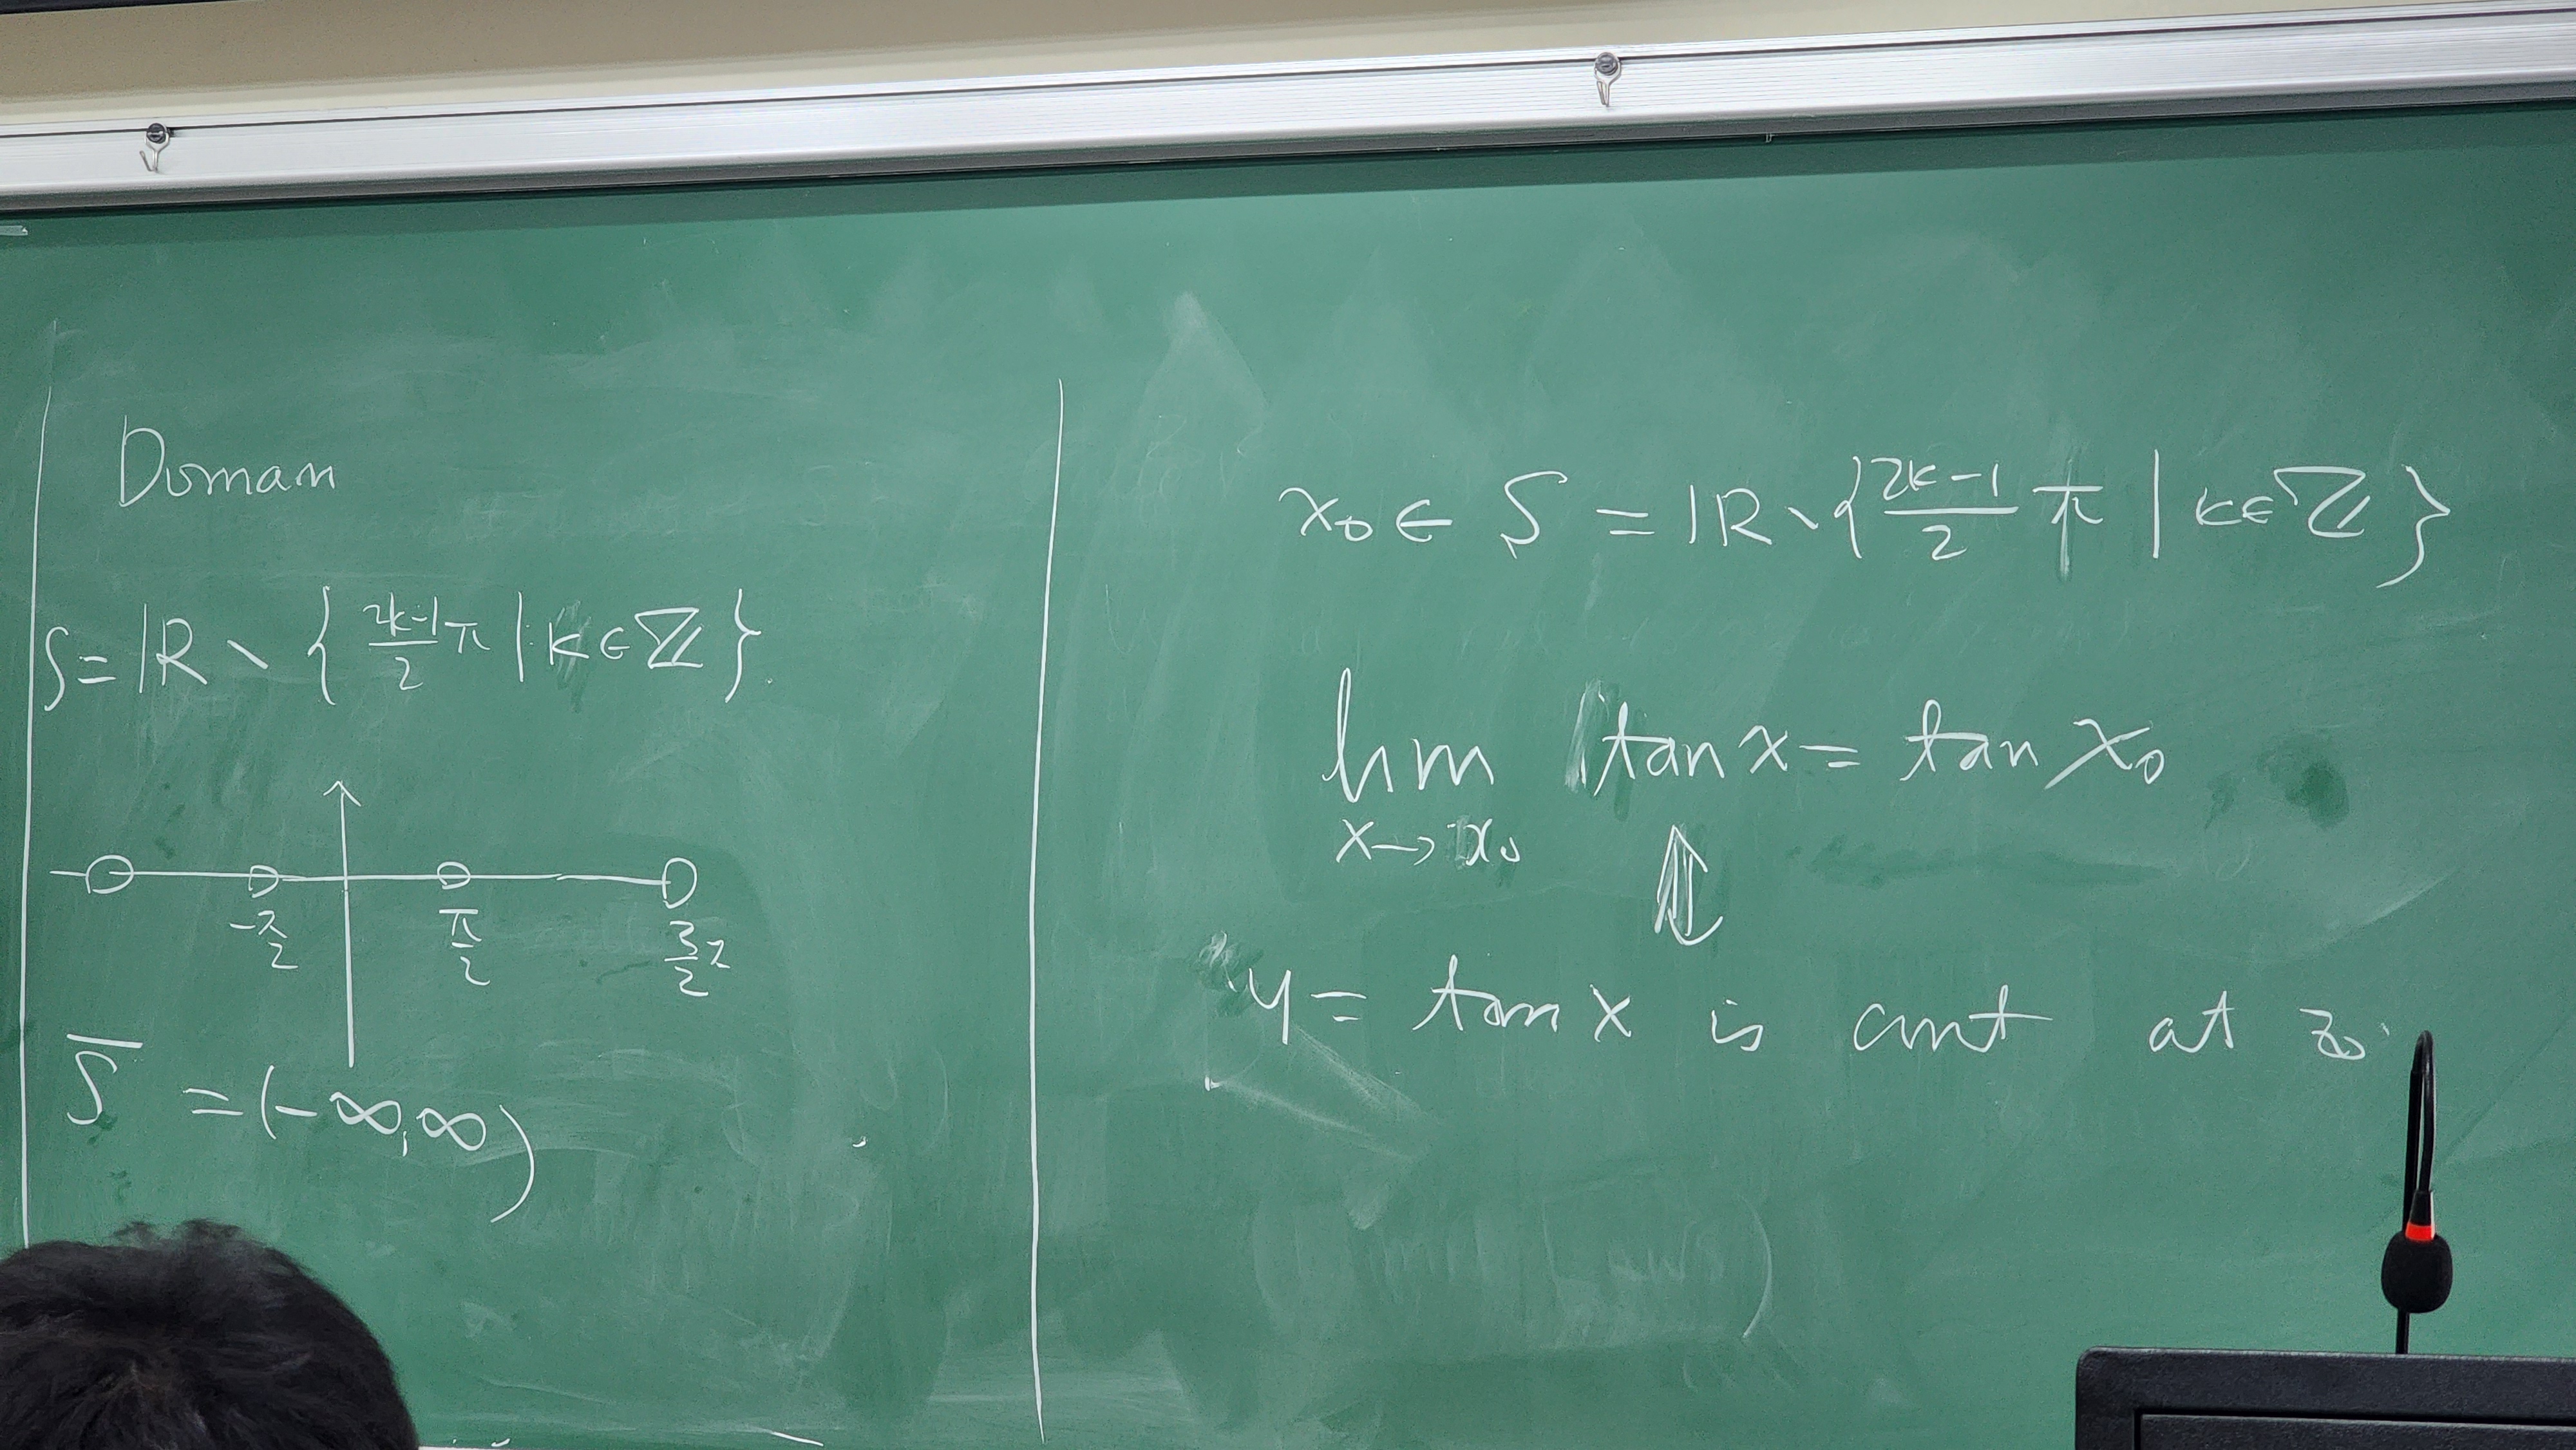 Domain
S = ℝ \ { (2k-1)/2 π | k ∈ ℤ }.
-π/2 π/2 3/2 π
S̅ = (-∞, ∞)
x₀ ∈ S = ℝ \ { (2k-1)/2 π | k ∈ ℤ }
lim tan x = tan x₀
x → x₀ ⇕
y = tan x is cont at x₀.